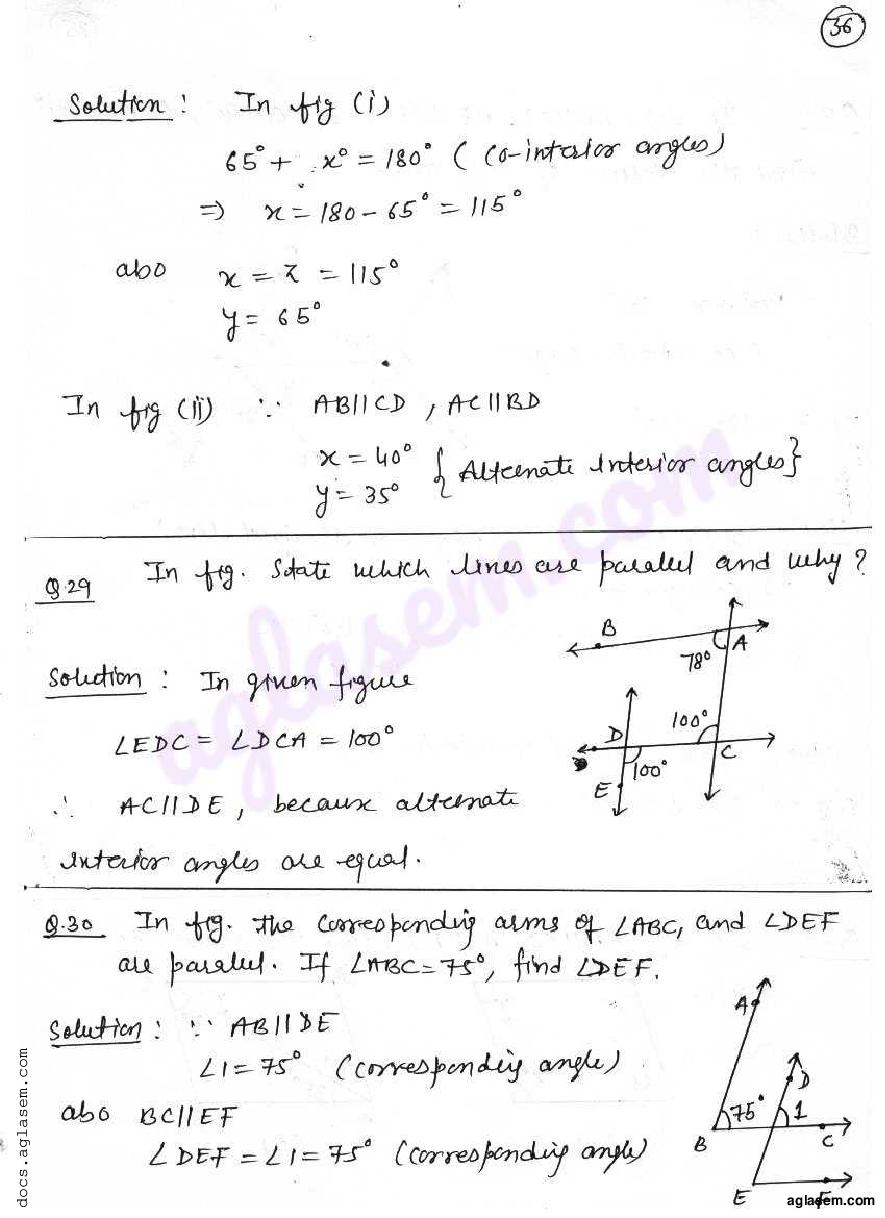 36
Solution : In fig (i)
65° + x° = 180° ( co-interior angles)
⇒ x = 180 - 65° = 115°
also x = z = 115°
y = 65°
In fig (ii) ∵ AB||CD , AC||BD
x = 40°
y = 35° { Alternate interior angles}
Q.29 In fig. State which lines are parallel and why?
B
A
78°
Solution : In given figure
∠EDC = ∠DCA = 100°
D
100°
C
100°
E
∴ AC||DE, because alternate
interior angles are equal.
Q.30 In fig. the corresponding arms of ∠ABC, and ∠DEF
are parallel. If ∠ABC = 75°, find ∠DEF.
A
Solution : ∵ AB||DE
∠1 = 75° (corresponding angle)
D
also BC||EF
75°
1
B
C
∠DEF = ∠1 = 75° (corresponding angle)
E
F
aglasem.com
docs.aglasem.com
aglasem.com